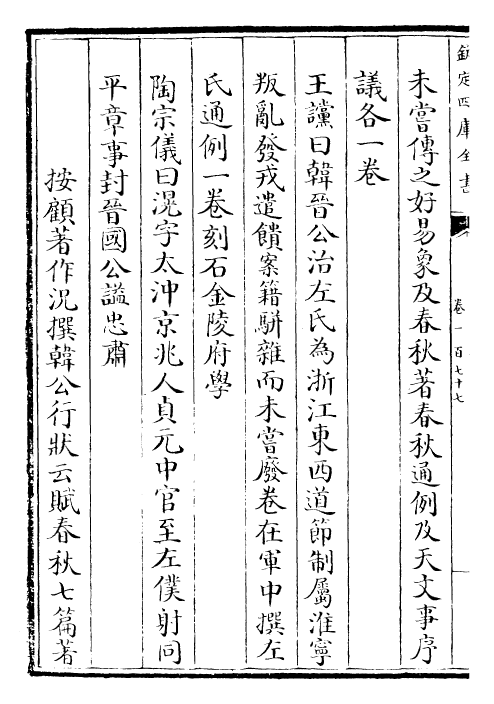 欽定四庫全書
卷一百七十七
未嘗傳之好易象及春秋著春秋通例及天文事序
議各一卷
王讜曰韓晉公治左氏為浙江東西道節制屬淮寧
叛亂發戎遣饋案籍駢雜而未嘗廢卷在軍中撰左
氏通例一卷刻石金陵府學
陶宗儀曰滉字太沖京兆人貞元中官至左僕射同
平章事封晉國公謚忠肅
按顧著作況撰韓公行狀云賦春秋七篇著